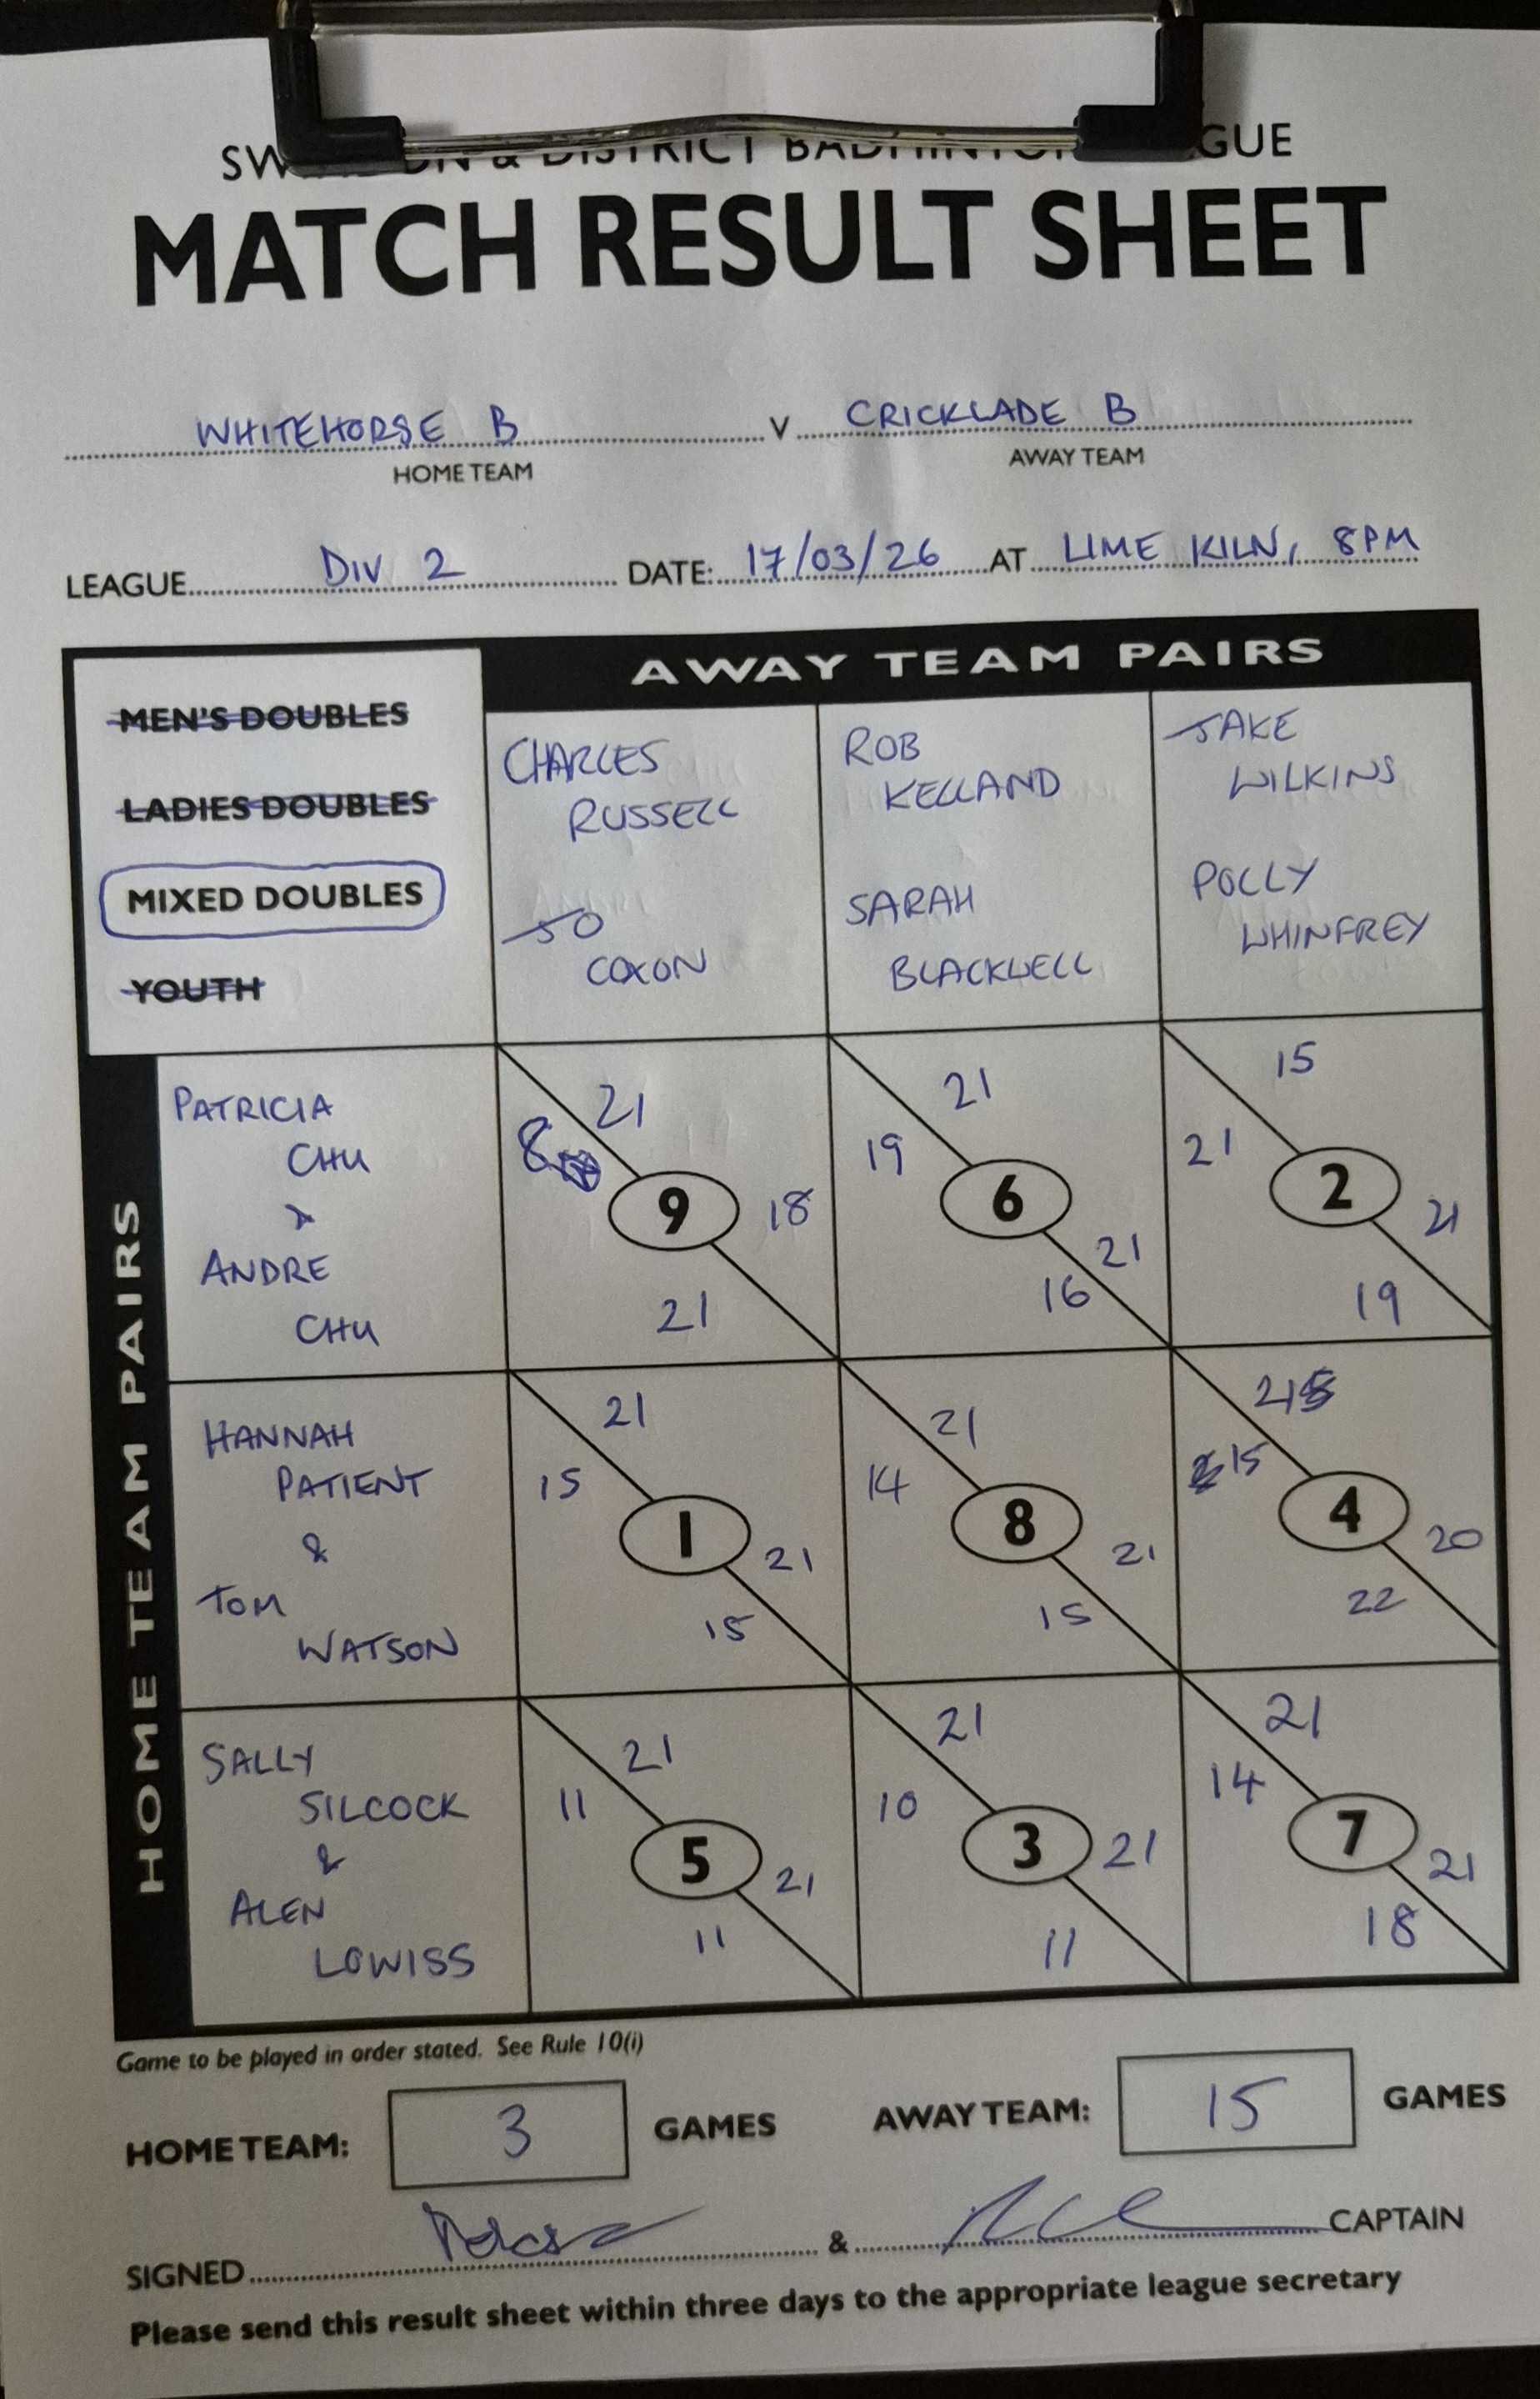 & DISTRICT BADMINTON
MATCH RESULT SHEET
WHITEHORSE B v CRICKLADE B
HOME TEAM AWAY TEAM
LEAGUE DIV 2 DATE: 17/03/26 AT LIME KILN, 8PM
MEN'S DOUBLES
LADIES DOUBLES
MIXED DOUBLES
YOUTH
AWAY TEAM PAIRS
CHARLES
RUSSELL
JO
COXON
ROB
KELLAND
SARAH
BLACKWELL
JAKE
WILKINS
POLLY
WHINFREY
HOME TEAM PAIRS
PATRICIA
CHU
&
ANDRE
CHU
21
8
9
18
21
21
19
6
21
16
15
21
2
21
19
HANNAH
PATIENT
&
TOM
WATSON
21
15
1
21
15
21
14
8
21
15
21
15
4
20
22
SALLY
SILCOCK
&
ALEN
LOWISS
21
11
5
21
11
21
10
3
21
11
21
14
7
21
18
Game to be played in order stated. See Rule 10(i)
HOME TEAM: 3 GAMES AWAY TEAM: 15 GAMES
SIGNED & CAPTAIN
Please send this result sheet within three days to the appropriate league secretary